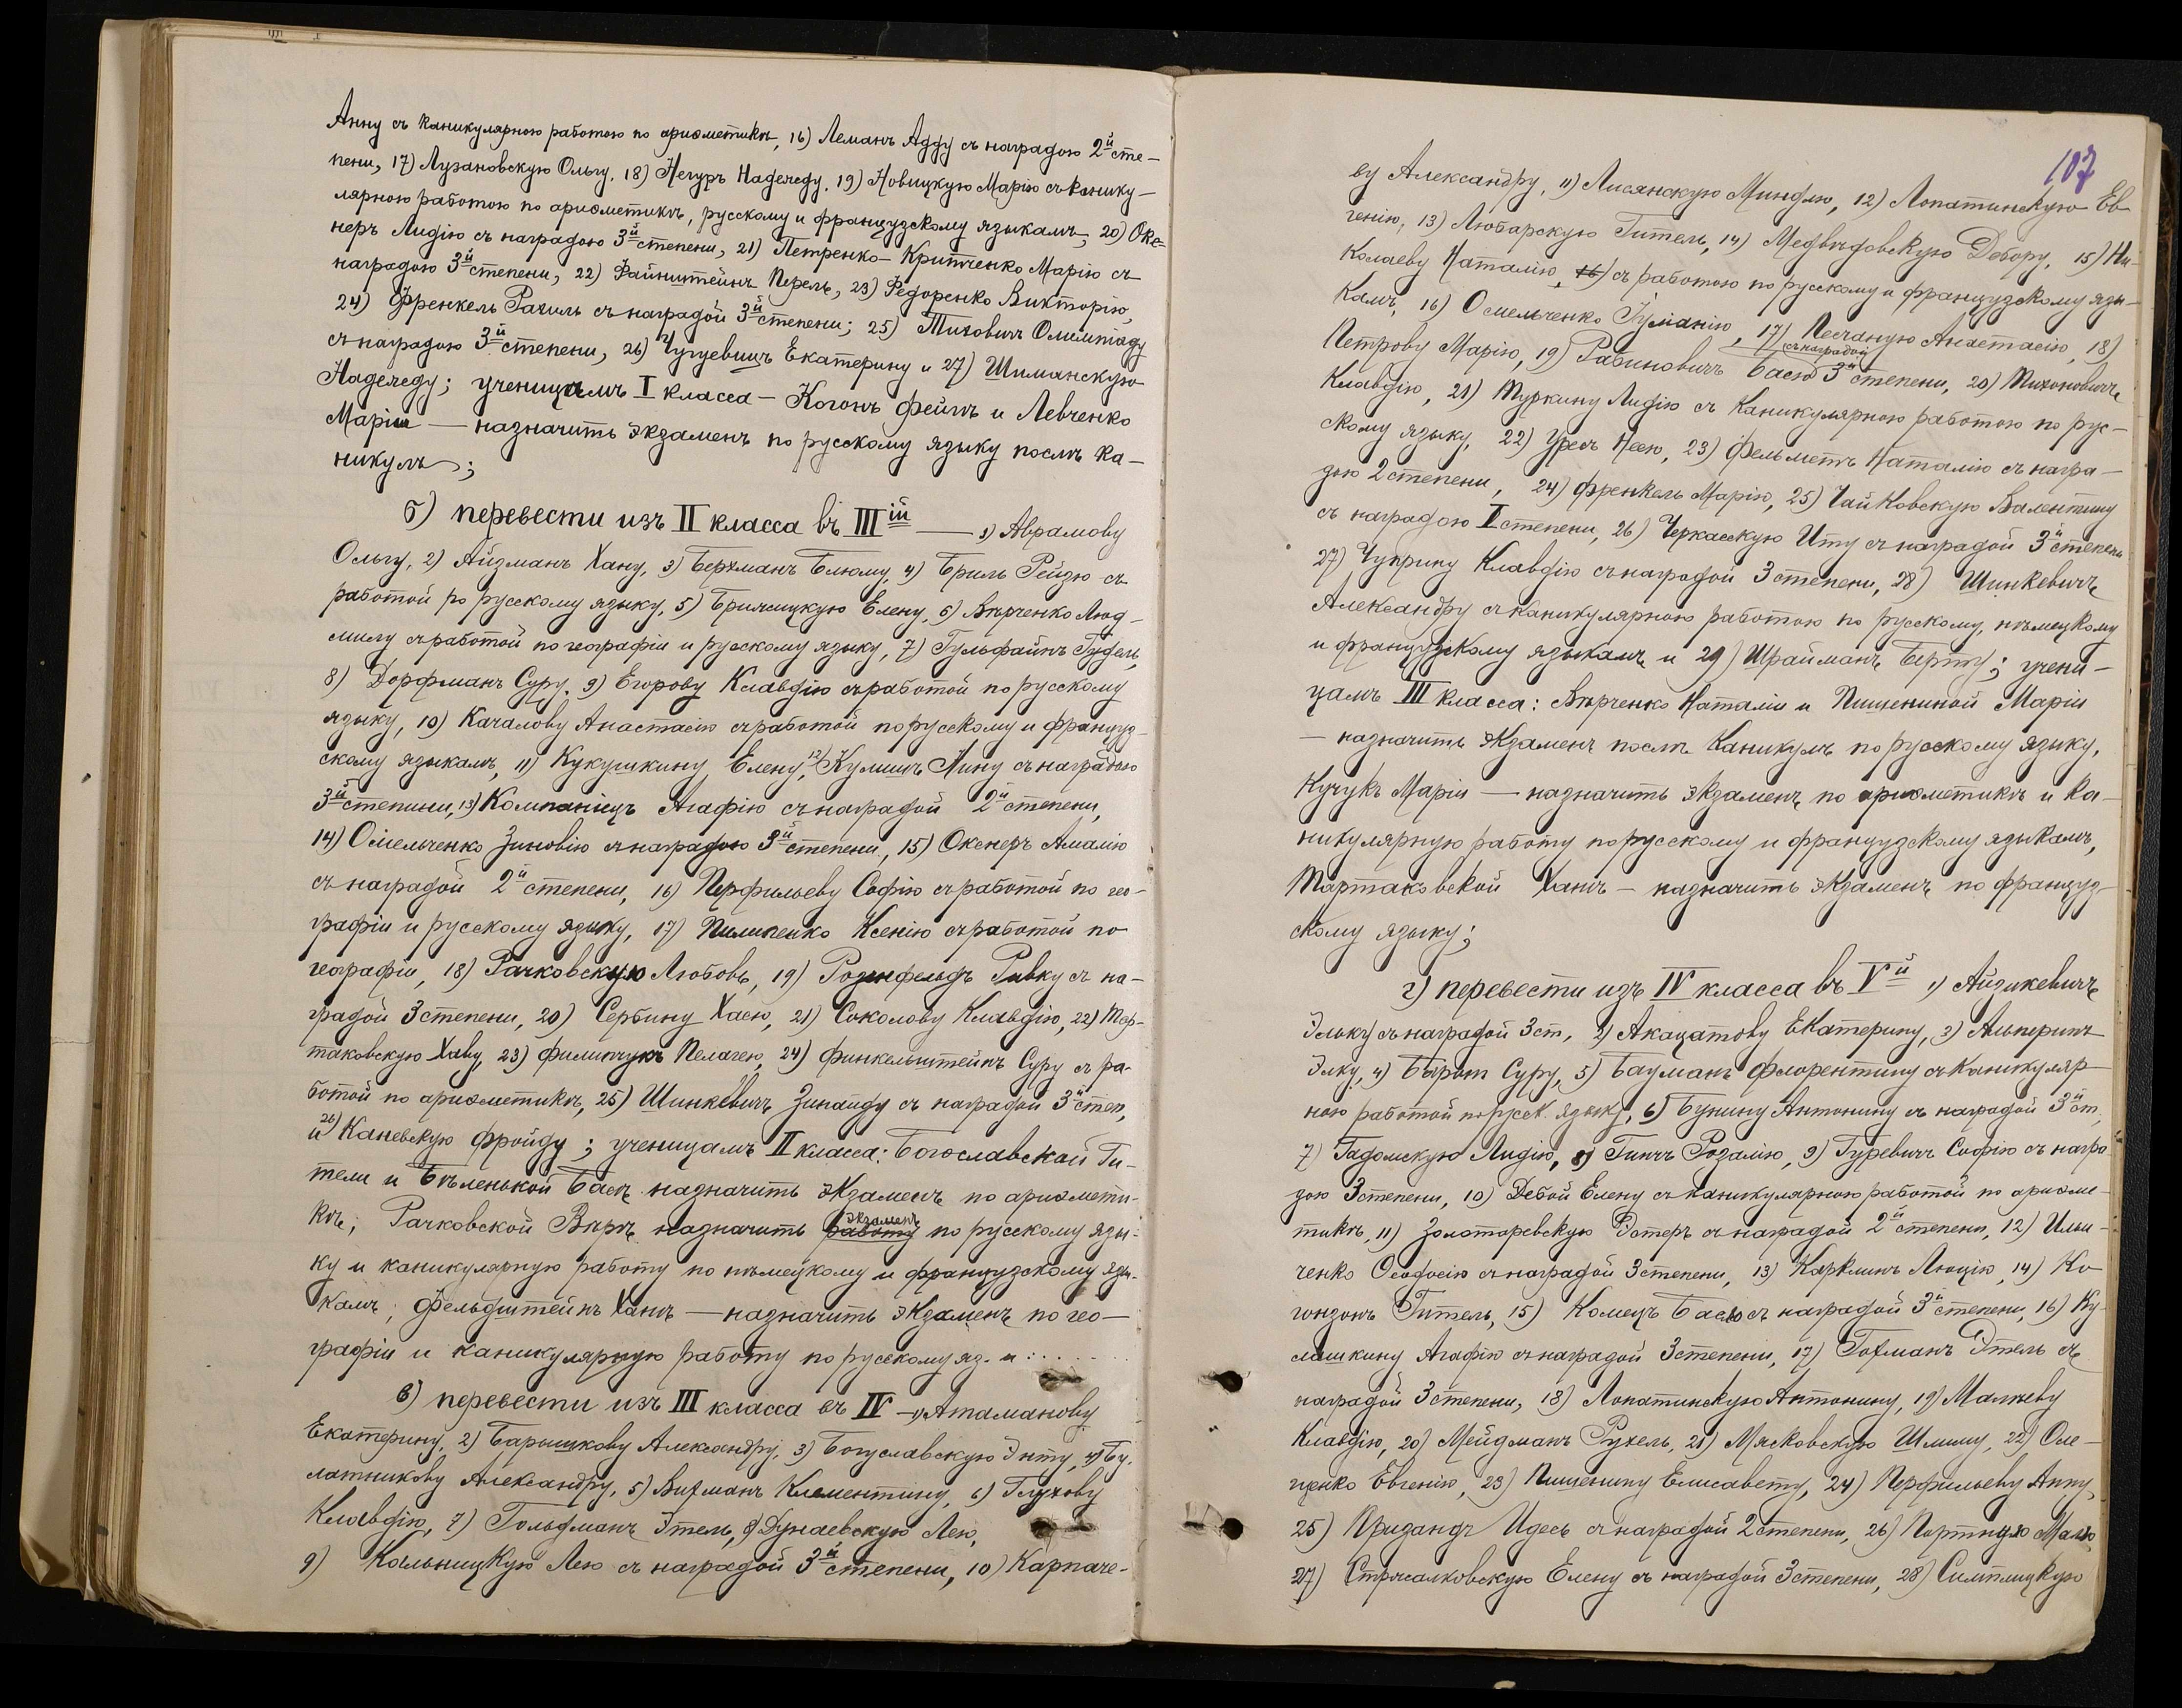 Анну съ каникулярною работою по ариѳметикѣ, 16) Леманъ Адду съ наградою 2й сте-
пени, 17) Лузановскую Ольгу, 18) Негуръ Надежду, 19) Новицкую Марію съ канику-
лярною работою по ариѳметикѣ, русскому и французскому языкамъ, 20) Окс-
неръ Лидію съ наградою 3й степени, 21) Петренко-Критченко Марію съ
наградою 3й степени, 22) Файнштейнъ Перель, 23) Федоренко Викторію,
24) Френкель Рахиль съ наградой 3й степени; 25) Тиховичъ Олимпіаду
съ наградою 3й степени, 26) Чугуевичъ Екатерину и 27) Шиманскую
Надежду; ученицамъ I класса – Когонъ Фейгѣ и Левченко
Маріи — назначить экзаменъ по русскому языку послѣ ка-
никулъ;
б) перевести изъ II класса въ IIIій — 1) Аврамову
Ольгу, 2) Айзманъ Хану, 3) Берхманъ Блюму, 4) Бриль Рейзю съ
работой по русскому языку, 5) Брижицкую Елену, 6) Вѣрченко Люд-
милу съ работой по географіи и русскому языку, 7) Гульфайнъ Гудель,
8) Дорфманъ Суру, 9) Егорову Клавдію съ работой по русскому
языку, 10) Качалову Анастасію съ работой по русскому и француз-
скому языкамъ, 11) Кукушкину Елену, 12) Кулишъ Нину съ наградою
3й степини, 13) Компаніецъ Агафію съ наградой 2й степени,
14) Омельченко Зиновію съ наградою 3й степени, 15) Окснеръ Амалію
съ наградой 2й степени, 16) Перфильеву Софію съ работой по гео-
графіи и русскому языку, 17) Пилипенко Ксенію съ работой по
географіи, 18) Рачковскую Любовь, 19) Розенфельдъ Ривку съ на-
градой 3 степени, 20) Сербину Хасю, 21) Соколову Клавдію, 22) Мар-
таковскую Хаву, 23) Филипчукъ Пелагею, 24) Финкельштейнъ Суру съ ра-
ботой по ариѳметикѣ, 25) Шинкевичъ Зинаиду съ наградой 3й степ,
и 26) Каневскую Фройду; ученицамъ II класса: Богославской Ги-
тели и Бѣленькой Басѣ назначить экзаменъ по ариѳмети-
кѣ; Рачковской Вѣрѣ назначить работу экзаменъ по русскому язы-
ку и каникулярную работу по нѣмецкому и французскому язы-
камъ; Фельдштейнъ Ханѣ — назначить экзаменъ по гео-
графіи и каникулярную работу по русскому яз. и
в) перевести изъ III класса въ IV – 1) Атаманову
Екатерину, 2) Барышкову Александру, 3) Богуславскую Энту, 4) Бу-
латникову Александру, 5) Вихманъ Клементину, 6) Глухову
Клавдію, 7) Гольдманъ Этель, 8) Дунаевскую Лею,
9) Кольницкую Лею съ наградой 3й степени, 10) Карпаче-
107
ву Александру, 11) Лисянскую Миндлю, 12) Лопатинскую Ев-
генію, 13) Любарскую Гитель, 14) Медвѣдовскую Дебору, 15) Ни-
колаеву Наталію, 16) съ работою по русскому и французскому язы-
камъ, 16) Омельченко Іуліанію, 17) Песчаную Анастасію, 18)
Петрову Марію, 19) Рабиновичъ Басю съ наградой 3й степени, 20) Тихоновичъ
Клавдію, 21) Туркину Лидію съ каникулярною работою по рус-
скому языку, 22) Уресъ Нехю, 23) Фельметъ Наталію съ награ-
дою 2 степени, 24) Френкель Марію, 25) Чайковскую Валентину
съ наградою I степени, 26) Черкасскую Иту съ наградой 3й степени
27) Чуприну Клавдію съ наградой 3 степени, 28) Шинкевичъ
Александру съ каникулярною работою по русскому, нѣмецкому
и французскому языкамъ и 29) Шрайманъ Берту; учени-
цамъ III класса: Вѣрченко Наталіи и Пшениной Маріи
— назначить экзаменъ послѣ каникулъ по русскому языку,
Кучукъ Маріи — назначить экзаменъ по ариѳметикѣ и ка-
никулярную работу по русскому и французскому языкамъ,
Мартаковской Ханѣ — назначить экзаменъ по француз-
скому языку;
г) перевести изъ IV класса въ Vй 1) Айзикевичъ
Эльку съ наградой 3 ст, 2) Акацатову Екатерину, 3) Альперинъ
Элку, 4) Баратъ Суру, 5) Бауманъ Флорентину съ каникуляр-
ною работой по русск. языку, 6) Бунину Антонину съ наградой 3й ст,
7) Гадомскую Лидію, 8) Гинчъ Розалію, 9) Гуревичъ Софію съ награ-
дою 3 степени, 10) Дебой Елену съ каникулярною работой по ариѳме-
тикѣ, 11) Золотаревскую Эстеръ съ наградой 2й степени, 12) Ильи-
ченко Ѳеодосію съ наградой 3 степени, 13) Карклинъ Люцію, 14) Ко-
гонзонъ Гитель, 15) Комецъ Басю съ наградой 3й степени, 16) Ку-
лашкину Агафію съ наградой 3 степени, 17) Гохманъ Этель съ
наградой 3 степени, 18) Лопатинскую Антонину, 19) Малѣеву
Клавдію, 20) Мейдманъ Рухель, 21) Мясковскую Шлиму, 22) Оле-
ценко Евгенію, 23) Пшенину Елисавету, 24) Перфильеву Анну,
25) Придандъ Идесь съ наградой 2 степени, 26) Портную Малю,
27) Стрижалковскую Елену съ наградой 3 степени, 28) Симплицкую